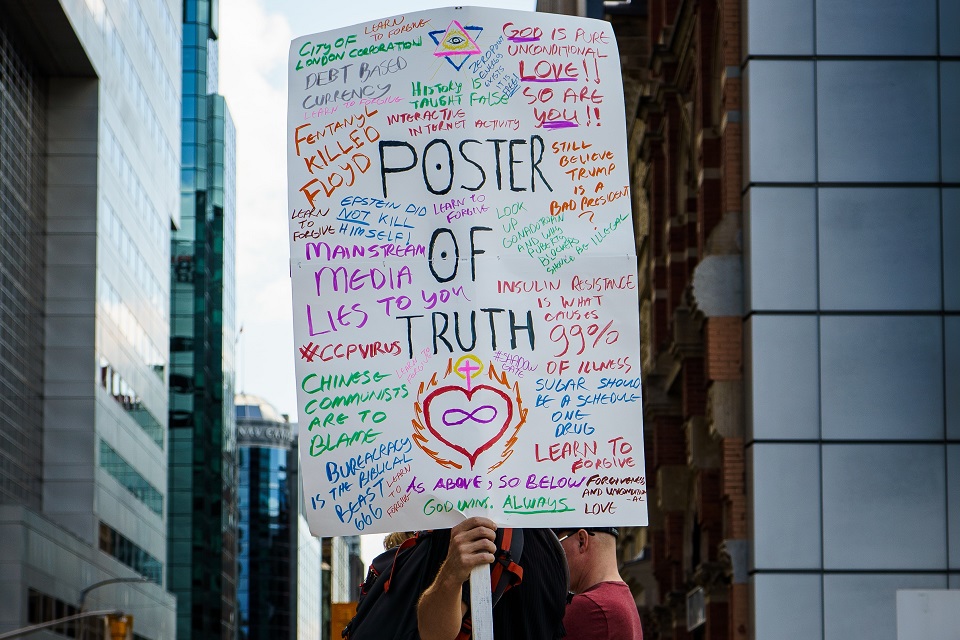 LEARN
TO FORGIVE
CITY OF
LONDON CORPORATION
DEBT BASED
CURRENCY
LEARN TO FORGIVE
GOD IS PURE
UNCONDITIONAL
LOVE!!
SO ARE
YOU!!
ZERO POINT
ENERGY
EXISTS
HISTORY IS
TAUGHT FALSE
INTERACTIVE
INTERNET ACTIVITY
FENTANYL
KILLED
FLOYD
POSTER
OF
TRUTH
STILL
BELIEVE
TRUMP
IS A
BAD PRESIDENT
?
LEARN
TO
FORGIVE
EPSTEIN DID
NOT KILL
HIMSELF!
LEARN TO
FORGIVE
LOOK
UP
AND WHY
PUBERTY
BLOCKERS
ILLEGAL
MAINSTREAM
MEDIA
LIES TO YOU
INSULIN RESISTANCE
IS WHAT
CAUSES
99%
OF ILLNESS
#CCPVIRUS
LEARN TO
FORGIVE
#SHADOW
GATE
CHINESE
COMMUNISTS
ARE TO
BLAME
SUGAR SHOULD
BE A SCHEDULE
ONE
DRUG
LEARN TO
FORGIVE
BUREAUCRACY
IS THE BIBLICAL
BEAST
666
LEARN
TO
FORGIVE
AS ABOVE, SO BELOW
GOD WINS. ALWAYS
FORGIVENESS
AND UNCONDITION
-AL
LOVE